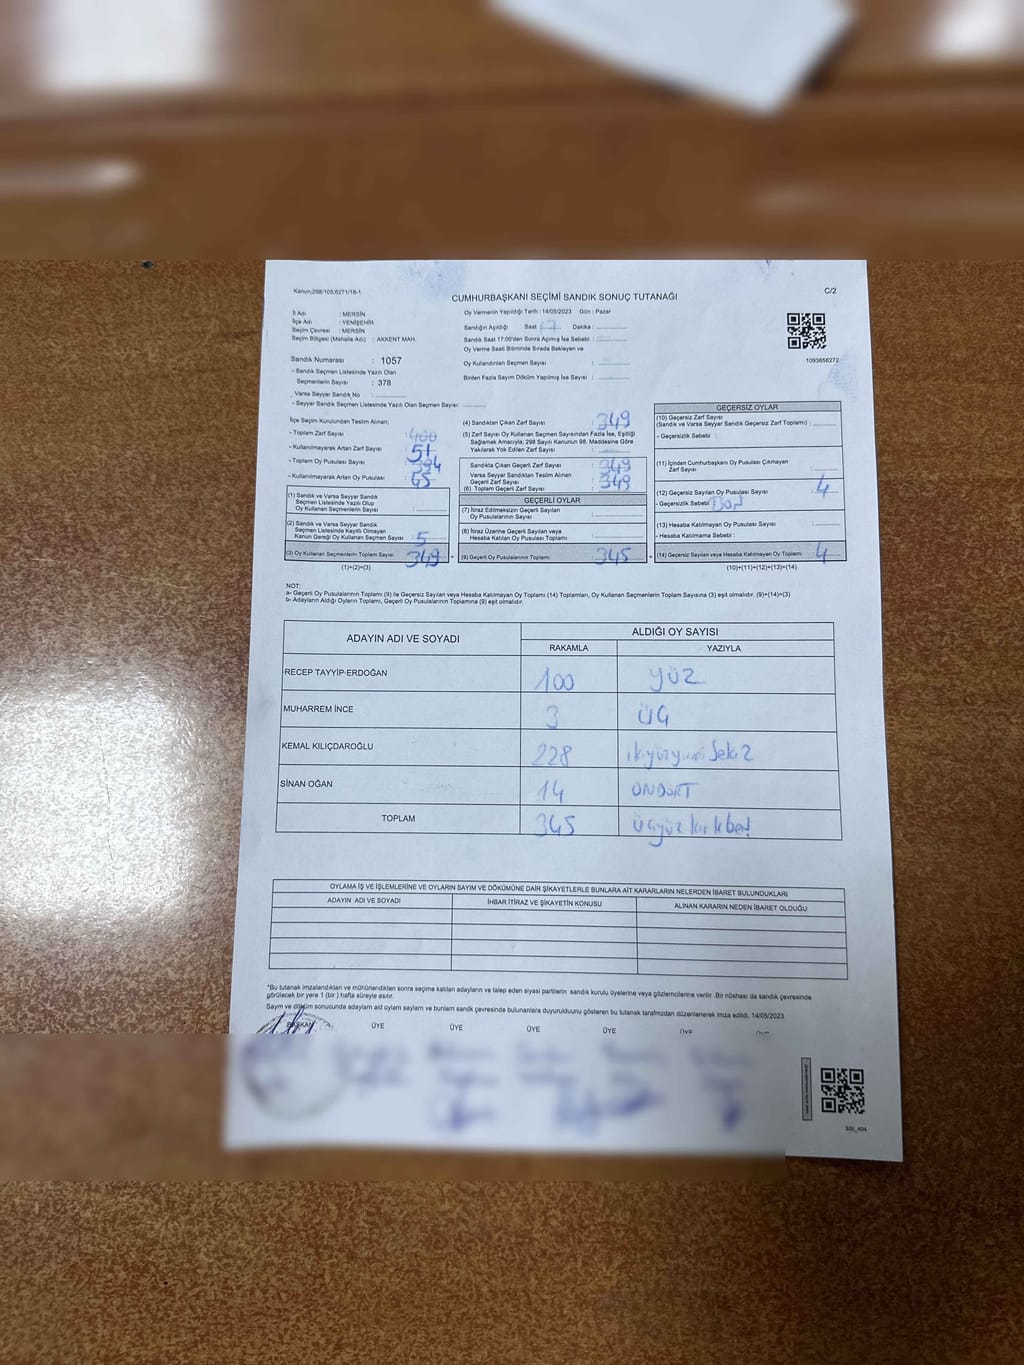 Kanun:298/105;6271/18-1
C/2
CUMHURBAŞKANI SEÇİMİ SANDIK SONUÇ TUTANAĞI
İl Adı : MERSİN
İlçe Adı : YENİŞEHİR
Seçim Çevresi : MERSİN
Seçim Bölgesi (Mahalle Adı) : AKKENT MAH.
Sandık Numarası : 1057
- Sandık Seçmen Listesinde Yazılı Olan
Seçmenlerin Sayısı : 378
Varsa Seyyar Sandık No :
- Seyyar Sandık Seçmen Listesinde Yazılı Olan Seçmen Sayısı:
Oy Vermenin Yapıldığı Tarih : 14/05/2023 Gün : Pazar
Sandığın Açıldığı Saat : 17 Dakika :
Sandık Saat 17:00'den Sonra Açmış İse Sebebi :
Oy Verme Saati Bitiminde Sırada Bekleyen ve
Oy Kullandırılan Seçmen Sayısı :
Birden Fazla Sayım Döküm Yapılmış İse Sayısı :
1093656272
İlçe Seçim Kurulundan Teslim Alınan:
- Toplam Zarf Sayısı : 400
- Kullanılmayarak Artan Zarf Sayısı : 51
- Toplam Oy Pusulası Sayısı : 394
- Kullanılmayarak Artan Oy Pusulası : 45
(1) Sandık ve Varsa Seyyar Sandık
Seçmen Listesinde Yazılı Olup
Oy Kullanan Seçmenlerin Sayısı :
(2) Sandık ve Varsa Seyyar Sandık
Seçmen Listesinde Kayıtlı Olmayan
Kanun Gereği Oy Kullanan Seçmen Sayısı : 5
(3) Oy Kullanan Seçmenlerin Toplam Sayısı : 349
(1)+(2)=(3)
(4) Sandıktan Çıkan Zarf Sayısı : 349
(5) Zarf Sayısı Oy Kullanan Seçmen Sayısından Fazla İse, Eşitliği
Sağlamak Amacıyla; 298 Sayılı Kanunun 98. Maddesine Göre
Yakılarak Yok Edilen Zarf Sayısı :
Sandıkta Çıkan Geçerli Zarf Sayısı : 349
Varsa Seyyar Sandıktan Teslim Alınan
Geçerli Zarf Sayısı : 349
(6) Toplam Geçerli Zarf Sayısı :
GEÇERLİ OYLAR
(7) İtiraz Edilmeksizin Geçerli Sayılan
Oy Pusulalarının Sayısı :
(8) İtiraz Üzerine Geçerli Sayılan veya
Hesaba Katılan Oy Pusulası Toplamı :
(9) Geçerli Oy Pusulalarının Toplamı : 345
GEÇERSİZ OYLAR
(10) Geçersiz Zarf Sayısı
(Sandık ve Varsa Seyyar Sandık Geçersiz Zarf Toplamı) :
- Geçersizlik Sebebi :
(11) İçinden Cumhurbaşkanı Oy Pusulası Çıkmayan
Zarf Sayısı :
(12) Geçersiz Sayılan Oy Pusulası Sayısı : 4
- Geçersizlik Sebebi :
(13) Hesaba Katılmayan Oy Pusulası Sayısı :
- Hesaba Katılmama Sebebi :
(14) Geçersiz Sayılan veya Hesaba Katılmayan Oy Toplamı : 4
(10)+(11)+(12)+(13)=(14)
NOT:
a- Geçerli Oy Pusulalarının Toplamı (9) ile Geçersiz Sayılan veya Hesaba Katılmayan Oy Toplamı (14) Toplamları, Oy Kullanan Seçmenlerin Toplam Sayısına (3) eşit olmalıdır. (9)+(14)=(3)
b- Adayların Aldığı Oyların Toplamı, Geçerli Oy Pusulalarının Toplamına (9) eşit olmalıdır.
ADAYIN ADI VE SOYADI ALDIĞI OY SAYISI
RAKAMLA YAZIYLA
RECEP TAYYİP ERDOĞAN 100 yüz
MUHARREM İNCE 3 üç
KEMAL KILIÇDAROĞLU 228 ikiyüzyirmi sekiz
SİNAN OĞAN 14 ONDÖRT
TOPLAM 345 üçyüz kırkbeş
OYLAMA İŞ VE İŞLEMLERİNE VE OYLARIN SAYIM VE DÖKÜMÜNE DAİR ŞİKAYETLERLE BUNLARA AİT KARARLARIN NELERDEN İBARET BULUNDUKLARI
ADAYIN ADI VE SOYADI İHBAR İTİRAZ VE ŞİKAYETİN KONUSU ALINAN KARARIN NEDEN İBARET OLDUĞU
*Bu tutanak imzalandıktan ve mühürlendikten sonra seçime katılan adayların ve talep eden siyasi partilerin sandık kurulu üyelerine veya gözlemcilerine verilir .Bir nüshası da sandık çevresinde
görülecek bir yere 1 (bir ) hafta süreyle asılır.
Sayım ve döküm sonucunda adaylara aid oylam sayları ve bunlarn sandk çevresinde bulunanlara duyurulduunu gösteren bu tutanak tarafmzdan düzenlenerek imza edildi. 14/05/2023
BAŞKAN ÜYE ÜYE ÜYE ÜYE ÜYE ÜYE
SSI_404